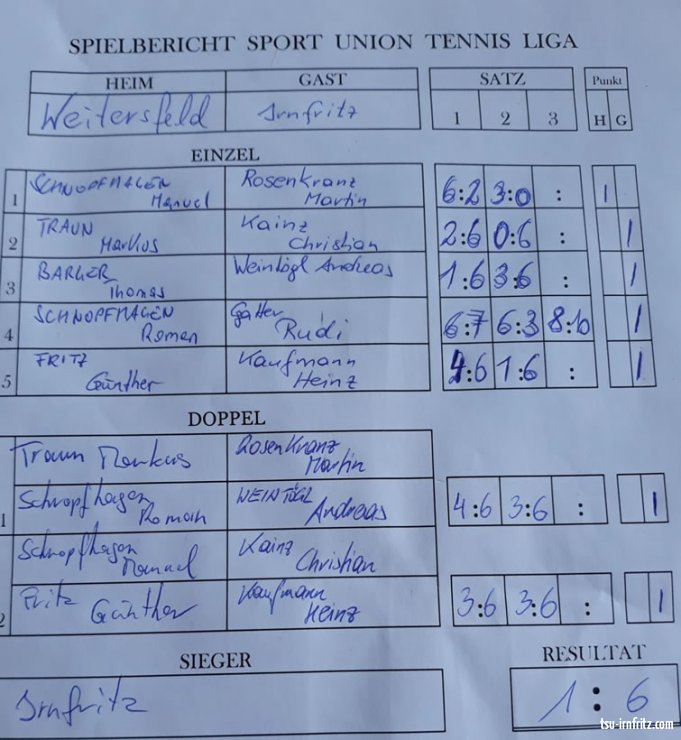 SPIELBERICHT SPORT UNION TENNIS LIGA
HEIM GAST SATZ Punkt
Weitersfeld Irnfritz 1 2 3 H G
EINZEL
1 SCHNOPFHAGEN Manuel Rosenkranz Martin 6:2 3:0 : 1
2 TRAUN Markus Kainz Christian 2:6 0:6 : 1
3 Thomas Weintögl Andreas 1:6 3:6 : 1
4 SCHNOPFHAGEN Roman Gatter Rudi 6:7 6:3 8:10 1
5 FRITZ Günther Kaufmann Heinz 4:6 1:6 : 1
DOPPEL
Traun Markus Rosenkranz Martin
1 Schnopfhagen Roman WEINTÖGL Andreas 4:6 3:6 : 1
Schnopfhagen Manuel Kainz Christian
2 Fritz Günther Kaufmann Heinz 3:6 3:6 : 1
SIEGER RESULTAT
Irnfritz 1:6
tsu-irnfritz.com